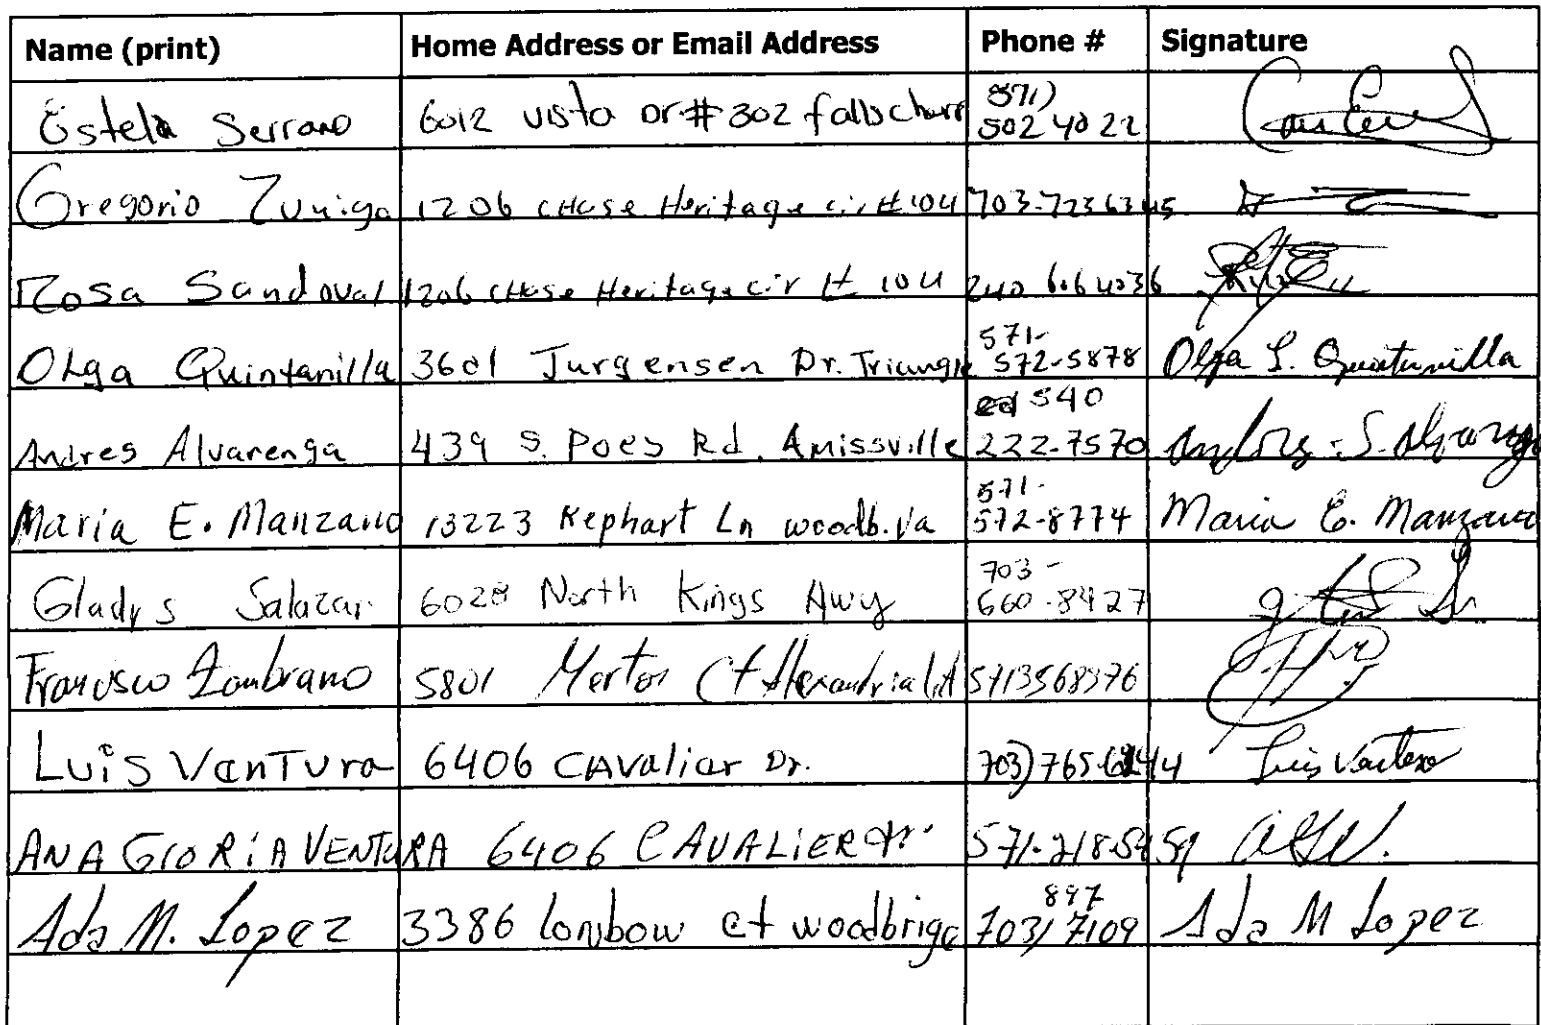 Name (print) Home Address or Email Address Phone # Signature
Estela Serrano 6012 vista Dr # 302 falls church 571) 502 4022
Gregorio Zuniga 1206 cHase Heritage cir # 104 703-7236345
Rosa Sandoval 1206 cHase Heritage cir # 104 240 606 4036
Olga Quintanilla 3601 Jurgensen Dr. Triangle 571- 572-5878 Olga L. Quintanilla
Andres Alvarenga 439 S. Poes Rd. Amissville 540 222-7570
Maria E. Manzano 13223 Kephart Ln woodb. Va 571- 572-8774 Maria E. Manzano
Gladys Salazar 6028 North Kings Hwy 703- 660-8427
Francisco Zambrano 5801 Ct Alexandria 5713568376
Luis VenTura 6406 CAvaliar Dr. 703) 765- Luis Ventura
ANA GloRiA VENTURA 6406 CAVALiER dr. 571-218-5459
Ada M. Lopez 3386 ct woodbrige 703) 897 7109 Ada M Lopez